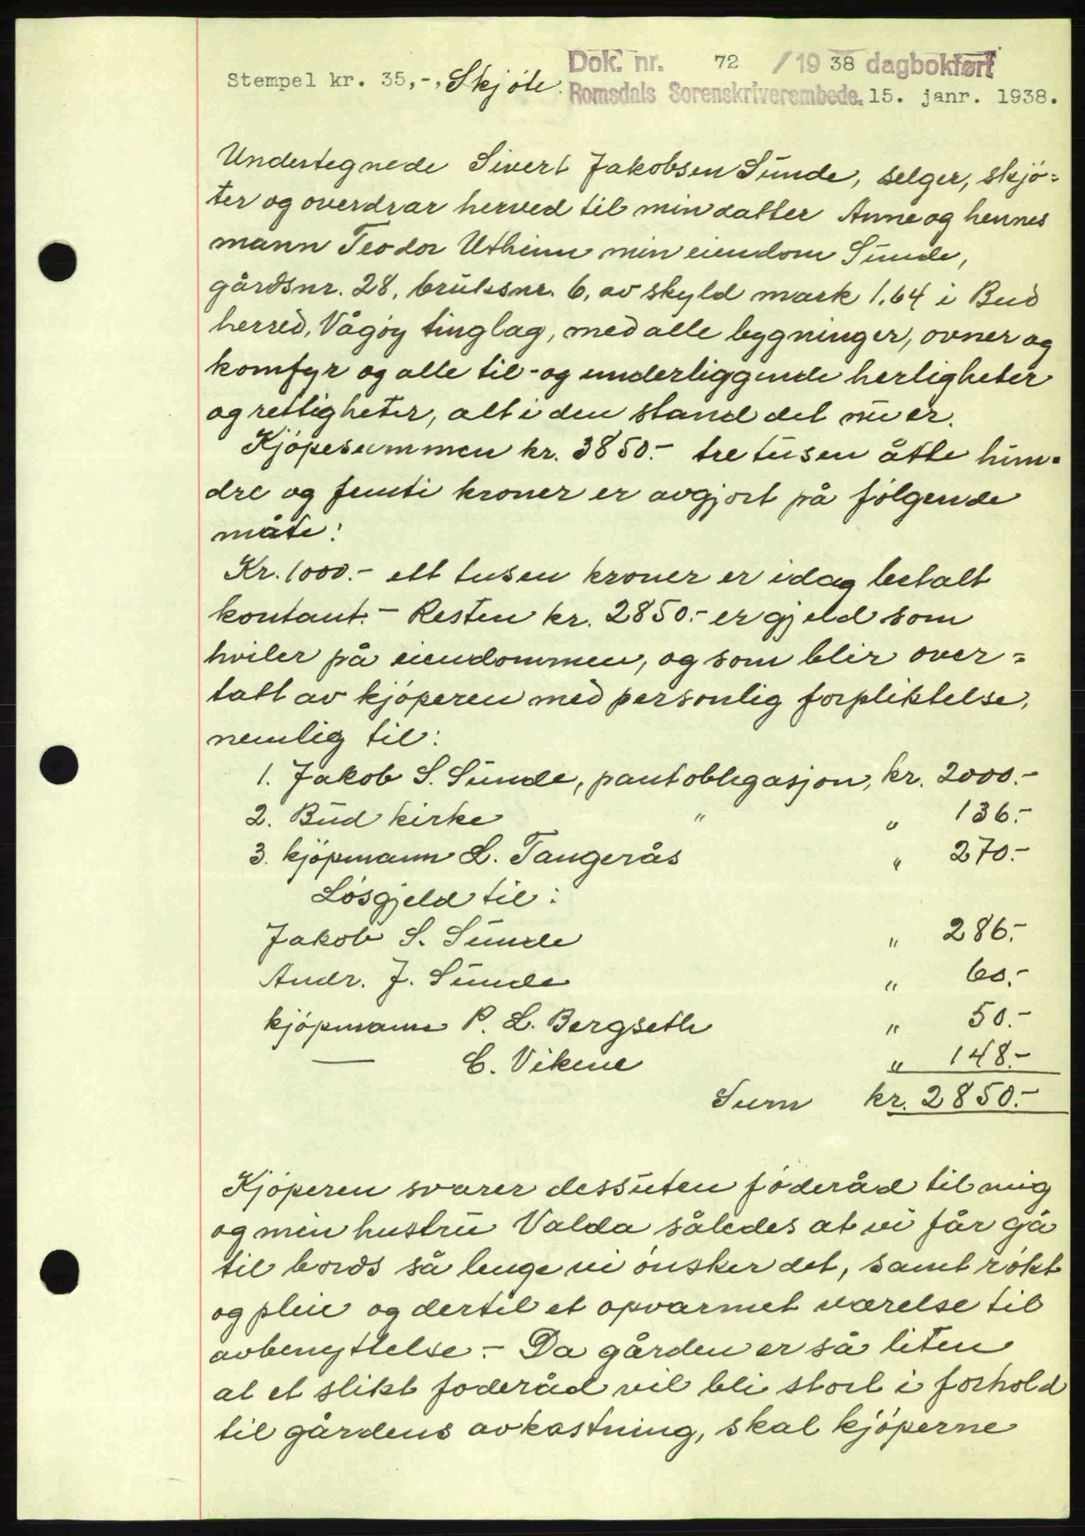 Dok. nr. 72 / 1938 dagbokført
Stempel kr. 35,-, Skjøte:
Romsdals Sorenskriverembede. 15. janr. 1938.
Undertegnede Sivert Jakobsen Sunde, selger, skjø-
ter og overdrar herved til min datter Anne og hennes
mann Teodor Utheim min eiendom Sunde,
gårdsnr. 28, bruksnr. 6, av skyld mark 1.64 i Bud
herred, Vågøy tinglag, med alle bygninger, ovner og
komfyr og alle til- og underliggende herligheter
og rettigheter, alt i den stand det nu er.
Kjøpesummen kr. 3850.- tre tusen åtte hun-
dre og femti kroner er avgjort på følgende
måte:
Kr. 1000.- ett tusen kroner er idag betalt
kontant. - Resten kr. 2850.- er gjeld som
hviler på eiendommen, og som blir over-
tatt av kjøperen med personlig forpliktelse,
nemlig til:
1. Jakob S. Sunde, pantobligasjon, kr. 2000.-
2. Bud kirke " " 136.-
3. kjøpmann L. Tangerås " 270.-
Løsgjeld til:
Jakob S. Sunde " 286.-
Andr. J. Sunde " 60.-
kjøpmann P. L. Bergseth " 50.-
— C. Vikene " 148.-
Sum kr. 2850.-
Kjøperen svarer dessuten føderåd til mig
og min hustru Valda således at vi får gå
til bords så lenge vi ønsker det, samt røkt
og pleie og dertil et opvarmet værelse til
avbenyttelse. - Da gården er så liten
at et slikt føderåd vil bli stort i forhold
til gårdens avkastning, skal kjøperne